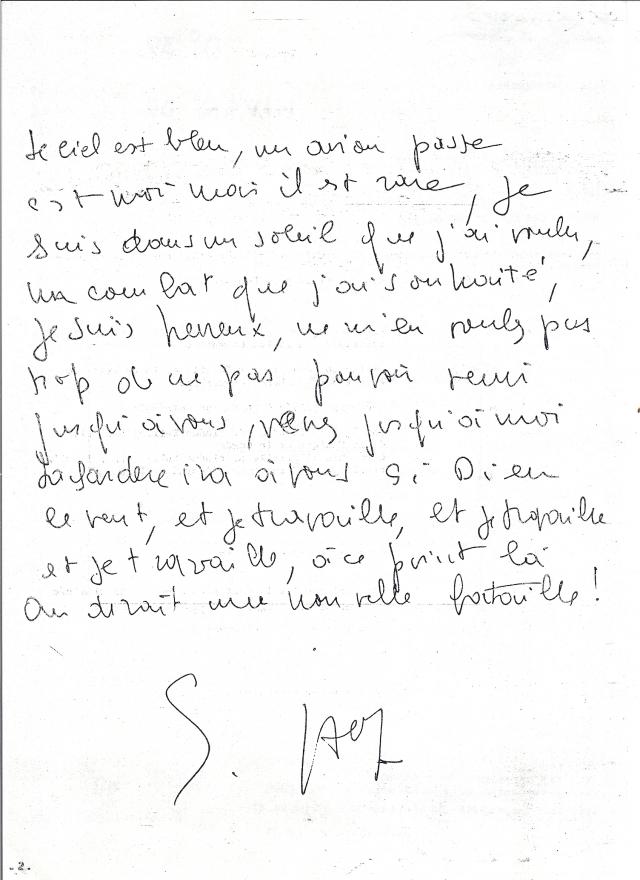 Le ciel est bleu, un avion passe
c'est moi mais il est rare, je
suis dans un soleil que j'ai voulu,
un combat que j'ai souhaité,
je suis heureux, ne m'en voulez pas
trop de ne pas pouvoir venir
jusqu'à vous, venez jusqu'à moi
ira à vous si Dieu
le veut, et je travaille, et je travaille
et je travaille, à ce point là
On dirait une nouvelle bataille!
S.
- 2 -